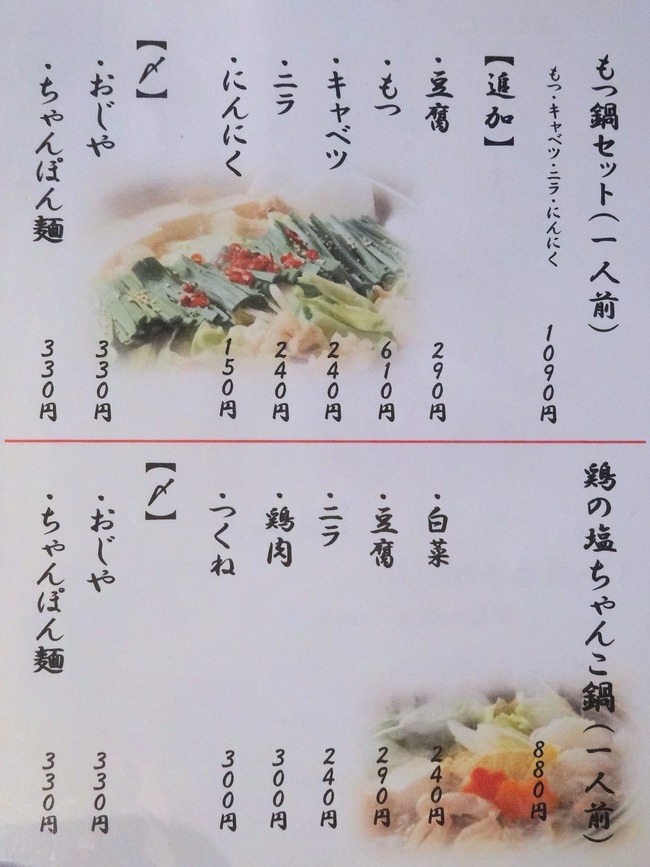 もつ鍋セット(一人前)
もつ・キャベツ・ニラ・にんにく
1090円
【追加】
・豆腐 290円
・もつ 610円
・キャベツ 240円
・ニラ 240円
・にんにく 150円
【〆】
・おじや 330円
・ちゃんぽん麺 330円
鶏の塩ちゃんこ鍋(一人前)
880円
・白菜 240円
・豆腐 290円
・ニラ 240円
・鶏肉 300円
・つくね 300円
【〆】
・おじや 330円
・ちゃんぽん麺 330円